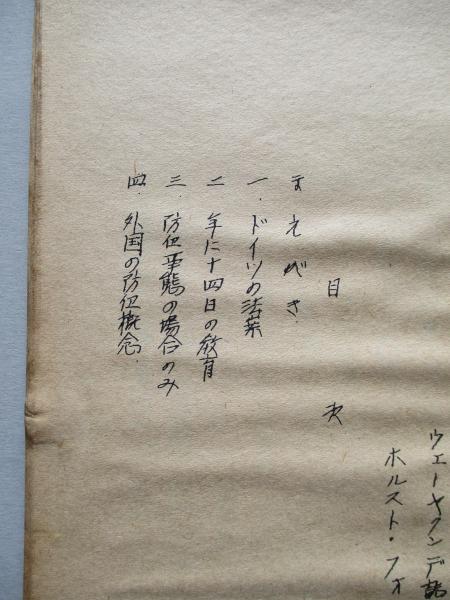 ウェーヤクンデ誌
ホルスト・フォ
目次
まえがき
一.ドイツの法案
二 年に十四日の教育
三.防衛事態の場合のみ
四.外国の防衛概念.